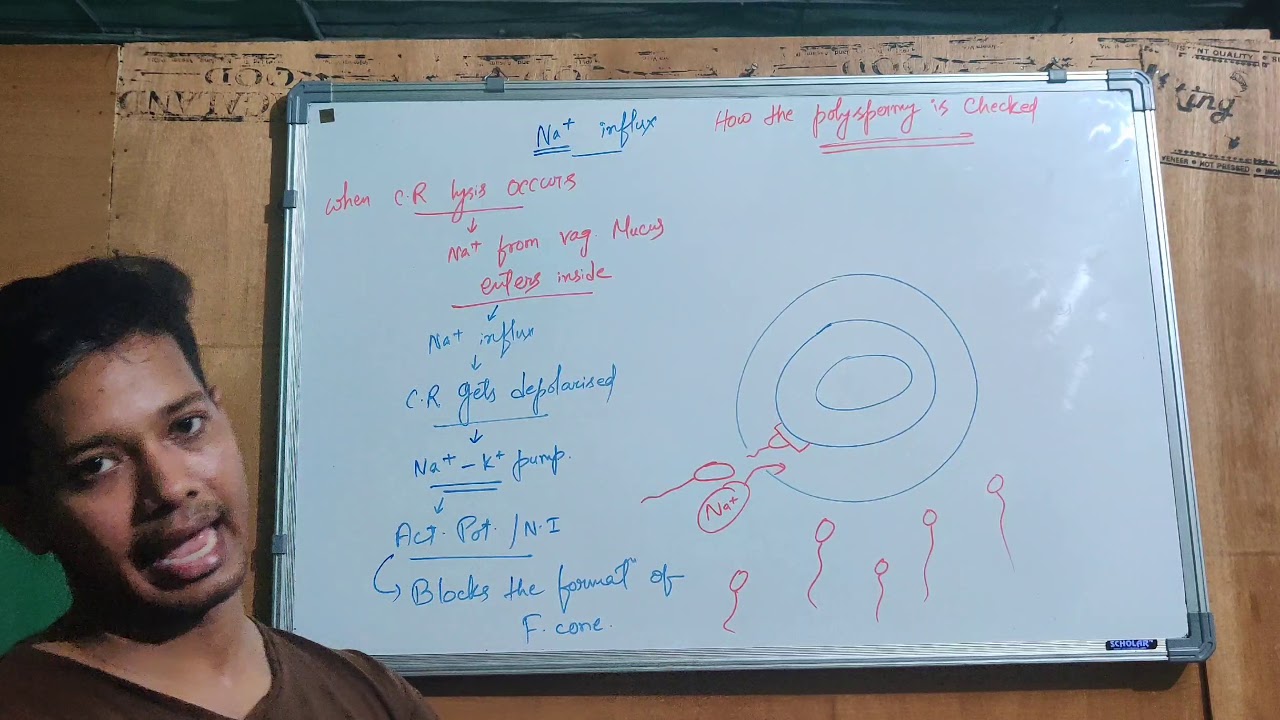 Na+ influx
How the polyspermy is checked
When C.R lysis occurs
Na+ from vag. Mucus
enters inside
Na+ influx
C.R gets depolarised
Na+ – K+ pump.
Act. Pot. / N.I
Blocks the formatn of
F. cone.
Na+
SCHOLAR
GOD
CATLAND
QUALITY
VENEER • HOT PRESSED •